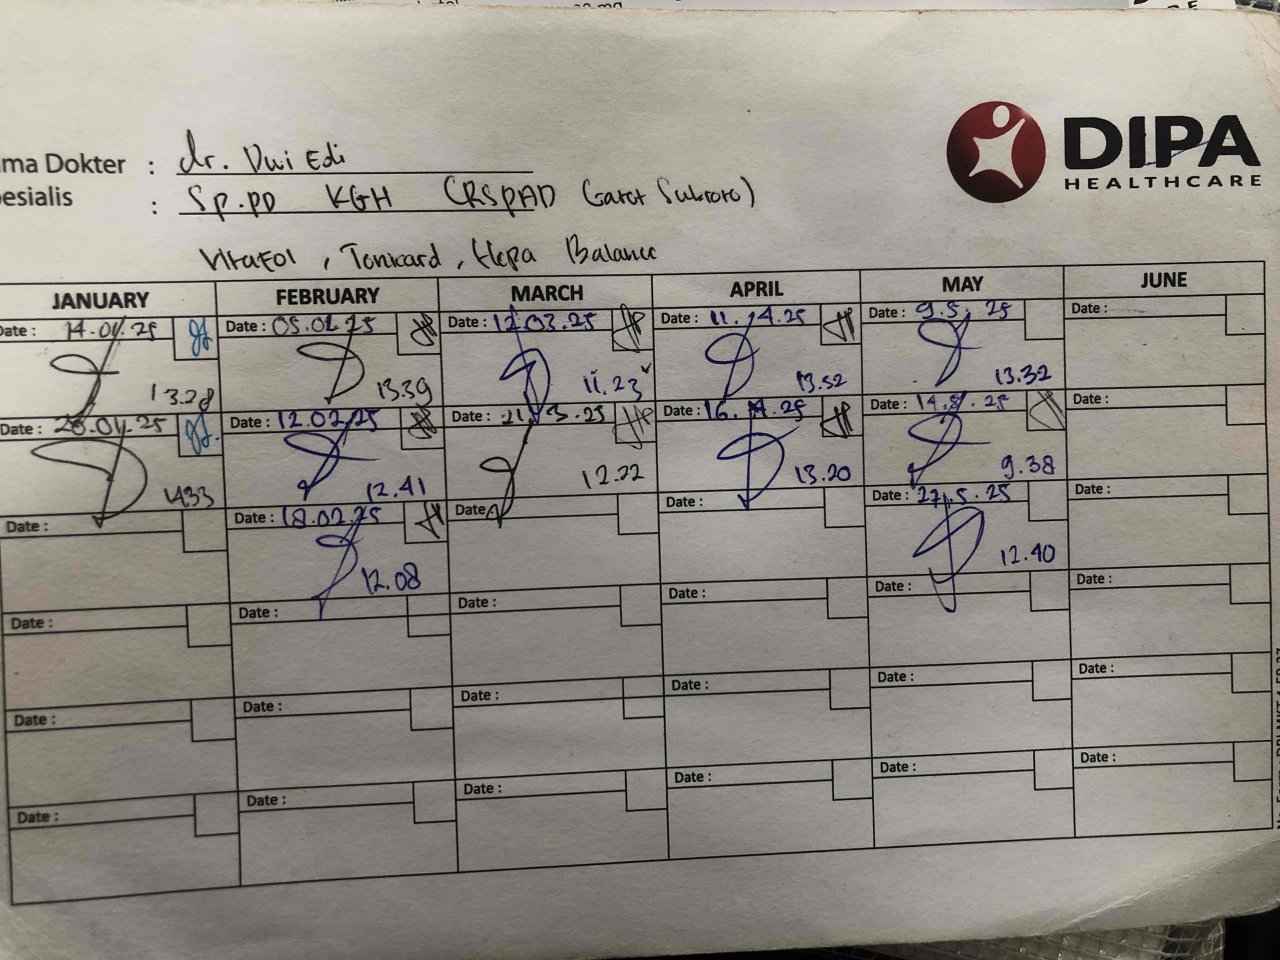 DIPA
HEALTHCARE
ma Dokter : dr. Dwi Edi
esialis : Sp.PD KGH (RSPAD Gatot Subroto)
, Tonicard, Hepa Balance
JANUARY FEBRUARY MARCH APRIL MAY JUNE
Date : 14.01.25 Date : 05.02.25 Date : 12.03.25 Date : 11.4.25 Date : 9.5.25 Date :
13.28 13.39 11.23 13.52 13.32
Date : 20.01.25 Date : 12.02.25 Date : 21.3.25 Date : 16.4.25 Date : 14.5.25 Date :
1433 12.41 12.22 13.20 9.38
Date : Date : 18.02.25 Date : Date : Date : 27.5.25 Date :
12.08 12.40
Date : Date : Date : Date : Date : Date :
Date : Date : Date : Date : Date : Date :
Date : Date : Date : Date : Date : Date :